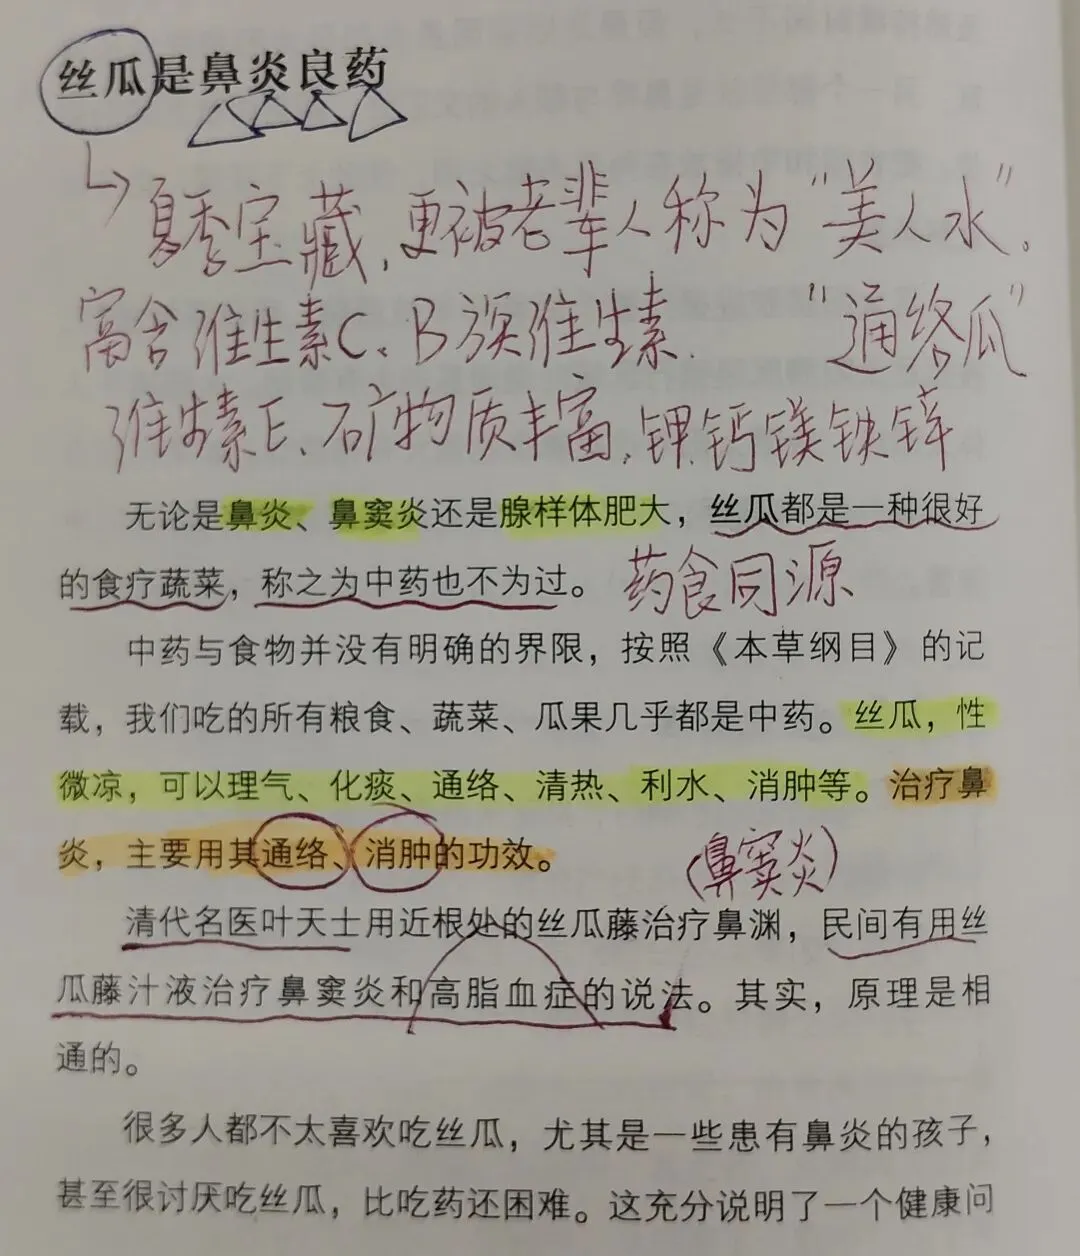 丝瓜是鼻炎良药
夏季宝藏,更被老辈人称为“美人水”。
富含维生素C、B族维生素. “通络瓜”
维生素E、矿物质丰富,钾钙镁铁锌
无论是鼻炎、鼻窦炎还是腺样体肥大，丝瓜都是一种很好
的食疗蔬菜，称之为中药也不为过。 药食同源
中药与食物并没有明确的界限，按照《本草纲目》的记
载，我们吃的所有粮食、蔬菜、瓜果几乎都是中药。丝瓜，性
微凉，可以理气、化痰、通络、清热、利水、消肿等。治疗鼻
炎，主要用其通络、消肿的功效。 (鼻窦炎)
清代名医叶天士用近根处的丝瓜藤治疗鼻渊，民间有用丝
瓜藤汁液治疗鼻窦炎和高脂血症的说法。其实，原理是相
通的。
很多人都不太喜欢吃丝瓜，尤其是一些患有鼻炎的孩子，
甚至很讨厌吃丝瓜，比吃药还困难。这充分说明了一个健康问